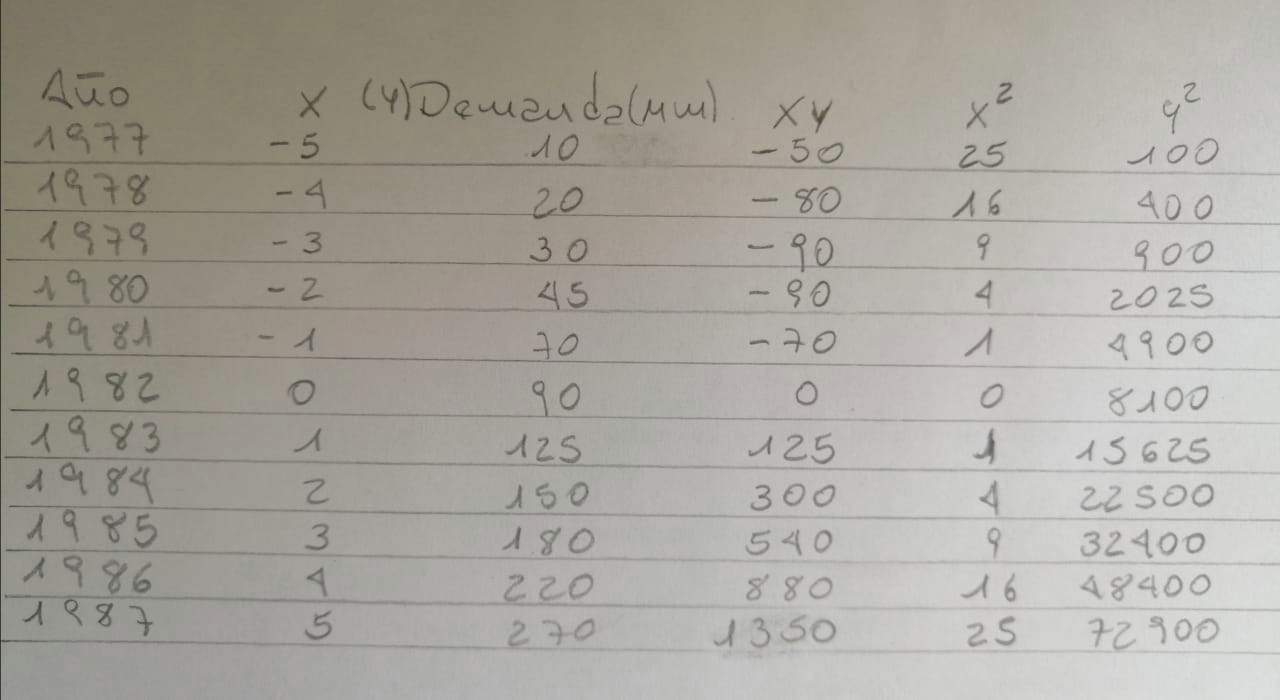 Año X (Y)Demanda(MM) XY X² Y²
1977 -5 10 -50 25 100
1978 -4 20 -80 16 400
1979 -3 30 -90 9 900
1980 -2 45 -90 4 2025
1981 -1 70 -70 1 4900
1982 0 90 0 0 8100
1983 1 125 125 1 15625
1984 2 150 300 4 22500
1985 3 180 540 9 32400
1986 4 220 880 16 48400
1987 5 270 1350 25 72900